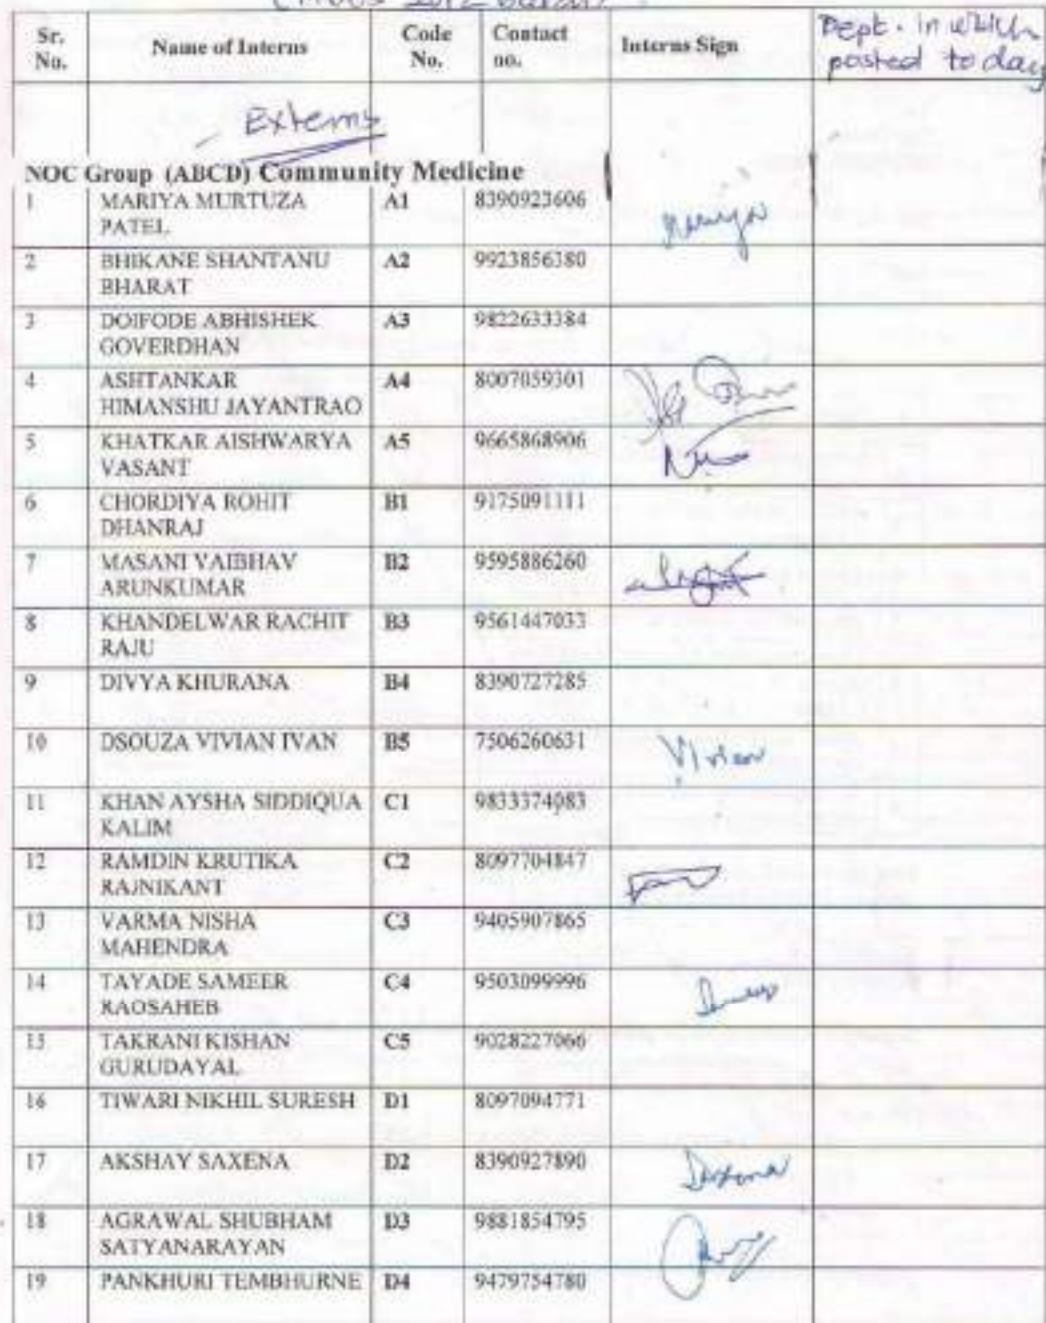 (MBBS 2012 Batch)
Sr. No. Name of Interns Code No. Contact no. Interns Sign Dept. in which posted today
Externs
NOC Group (ABCD) Community Medicine
1 MARIYA MURTUZA PATEL A1 8390923606 Mariya
2 BHIKANE SHANTANU BHARAT A2 9923856380
3 DOIFODE ABHISHEK GOVERDHAN A3 9822633384
4 ASHTANKAR HIMANSHU JAYANTRAO A4 8007059301
5 KHATKAR AISHWARYA VASANT A5 9665868906
6 CHORDIYA ROHIT DHANRAJ B1 9175091111
7 MASANI VAIBHAV ARUNKUMAR B2 9595886260
8 KHANDELWAR RACHIT RAJU B3 9561447033
9 DIVYA KHURANA B4 8390727285
10 DSOUZA VIVIAN IVAN B5 7506260631 Vivian
11 KHAN AYSHA SIDDIQUA KALIM C1 9833374083
12 RAMDIN KRUTIKA RAJNIKANT C2 8097704847
13 VARMA NISHA MAHENDRA C3 9405907865
14 TAYADE SAMEER RAOSAHEB C4 9503099996
15 TAKRANI KISHAN GURUDAYAL C5 9028227066
16 TIWARI NIKHIL SURESH D1 8097094771
17 AKSHAY SAXENA D2 8390927890
18 AGRAWAL SHUBHAM SATYANARAYAN D3 9881854795
19 PANKHURI TEMBHURNE D4 9479754780